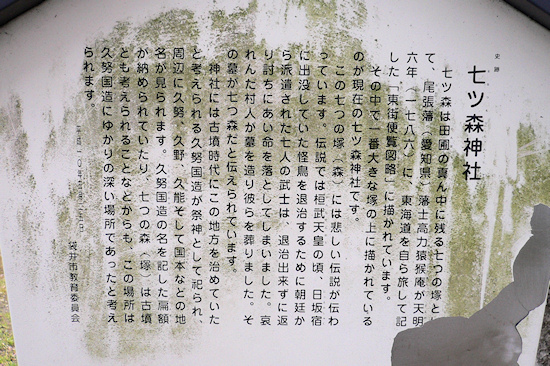 史跡
七ツ森神社
七ツ森は田圃の真ん中に残る七つの塚と
て、尾張藩(愛知県)藩士高力猿猴庵が天明
六年(一七八六)に、東海道を自ら旅して記
した「東街便覧図略」に描かれています。
その中で一番大きな塚の上に描かれている
のが現在の七ツ森神社です。
この七つの塚(森)には悲しい伝説が伝わ
っています。伝説では桓武天皇の頃、日坂宿
に出没していた怪鳥を退治するために朝廷か
ら派遣された七人の武士は、退治出来ずに返
り討ちにあい命を落としてしまいました。哀
れんだ村人が墓を造り彼らを葬りました。そ
の墓が七つ森だと伝えられています。
神社には古墳時代にこの地方を治めていた
と考えられる久努国造が祭神として祀られ、
周辺に久努、久野、久能そして国本などの地
名が見られます。久努国造の名を記した扁額
が納められていたり、七つの森(塚)は古墳
とも考えられることなどからも、この場所は
久努国造にゆかりの深い場所であったと考え
られます。
袋井市教育委員会